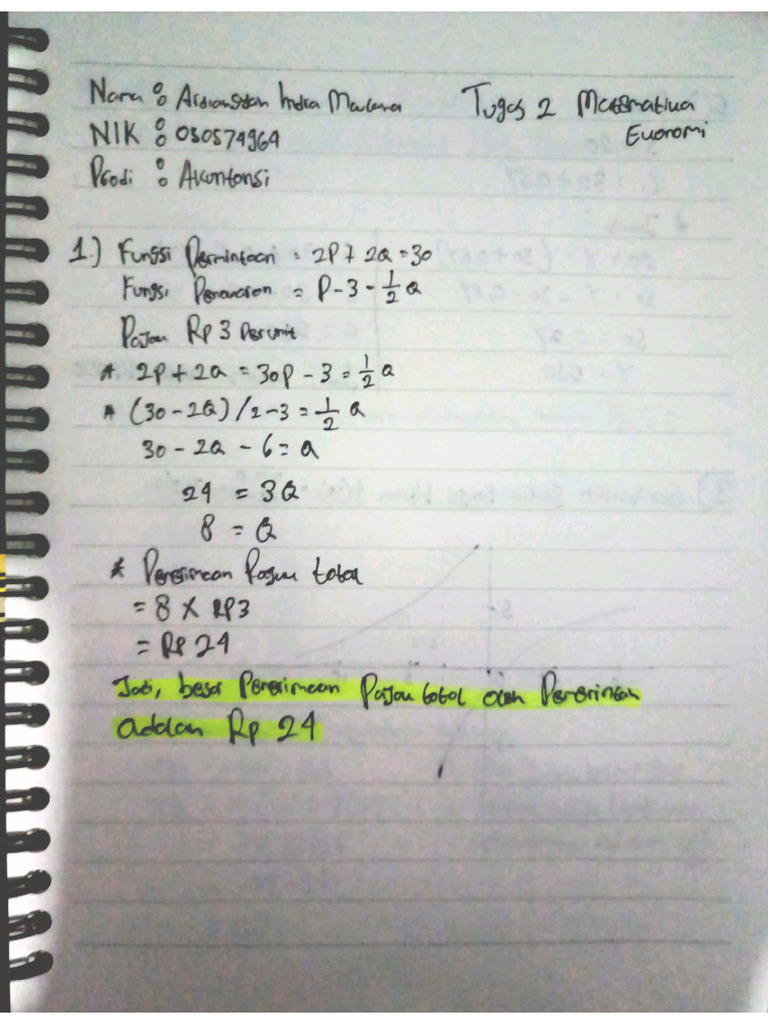 Nama : Ardiansyah Indra Maulana Tugas 2 Matematika
NIK : 050574964 Ekonomi
Prodi : Akuntansi
1.) Fungsi Permintaan = 2P + 2Q = 30
Fungsi Penawaran = P - 3 = 1/2 Q
Pajak Rp 3 Per unit
* 2P + 2Q = 30 P - 3 = 1/2 Q
* (30 - 2Q) / 2 - 3 = 1/2 Q
30 - 2Q - 6 = Q
24 = 3Q
8 = Q
* Penerimaan Pajak total
= 8 x RP3
= Rp 24
Jadi, besar Penerimaan Pajak total oleh Pemerintah
adalah Rp 24